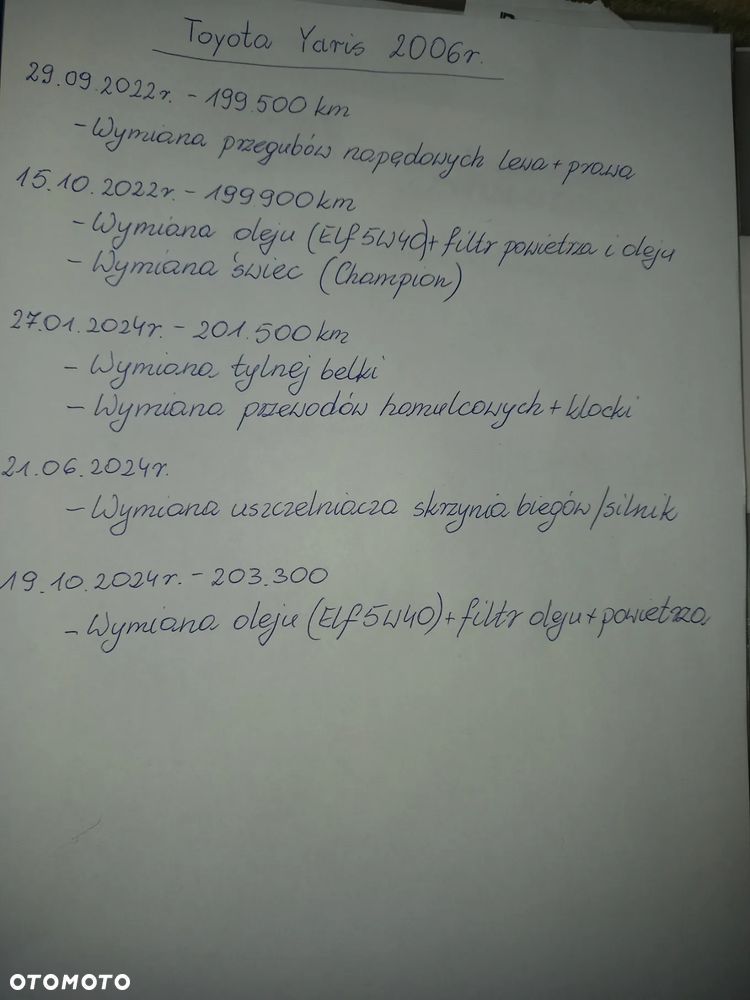 Toyota Yaris 2006r.
29.09.2022r. - 199.500 km
- Wymiana przegubów napędowych lewa + prawa
15.10.2022r. - 199900 km
- Wymiana oleju (Elf 5W40) + filtr powietrza i oleju
- Wymiana świec (Champion)
27.01.2024r. - 201.500 km
- Wymiana tylnej belki
- Wymiana przewodów hamulcowych + klocki
21.06.2024r.
- Wymiana uszczelniacza skrzynia biegów/silnik
19.10.2024r. - 203.300
- Wymiana oleju (Elf 5W40) + filtr oleju + powietrza
OTOMOTO